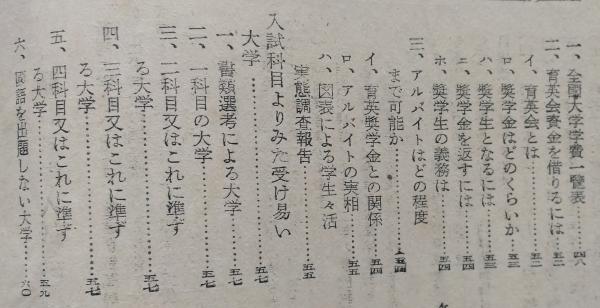 一、全国大学学費一覧表……四八
二、育英会資金を借りるには……五二
イ、育英会とは……五二
ロ、奨学金はどのくらいか……五三
ハ、奨学生となるには……五三
ニ、奨学金を返すには……五四
ホ、奨学生の義務は……五四
三、アルバイトはどの程度
まで可能か……五四
イ、育英奨学金との関係……五四
ロ、アルバイトの実相……五五
ハ、図表による学生々活
実態調査報告……五五
入試科目よりみた受け易い
大学……五七
一、書類選考による大学……五七
二、一科目の大学……五七
三、二科目又はこれに準ず
る大学……五七
四、三科目又はこれに準ず
る大学……五七
五、四科目又はこれに準ず
る大学……五九
六、国語を出題しない大学……六〇